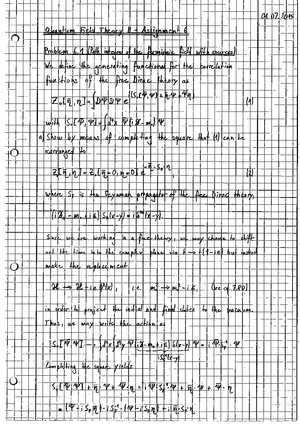 01.07.2015
Quantum Field Theory II - Assignment 6
Problem 6.1 (Path integral of the fermionic field with sources)
We define the generating functional for the correlation
functions of the free Dirac theory as
Z₀[η̄,η] = ∫DΨ̄DΨ e^{i(S₀[Ψ̄,Ψ] + η̄·Ψ + Ψ̄·η)} (1)
with S₀[Ψ̄,Ψ] = ∫d⁴x Ψ̄(i∂̸ - m₀)Ψ
a) Show by means of completing the square that (1) can be
rearranged to
Z₀[η̄,η] = Z₀[η̄=0,η=0] e^{-η̄·S_F·η}, (2)
where S_F is the Feynman propagator of the free Dirac theory,
(i∂̸ - m₀ + iε) S_F(x-y) = iδ⁽⁴⁾(x-y).
Since we are working in a free theory, we may choose to shift
not the time into the complex plane via t → t(1-iε) but instead
make the replacement
i.e. m₀² → m₀² - iε, (see eq. 7.80)
in order to project the initial and final states to the vacuum.
Thus, we may write the action as
Completing the square yields